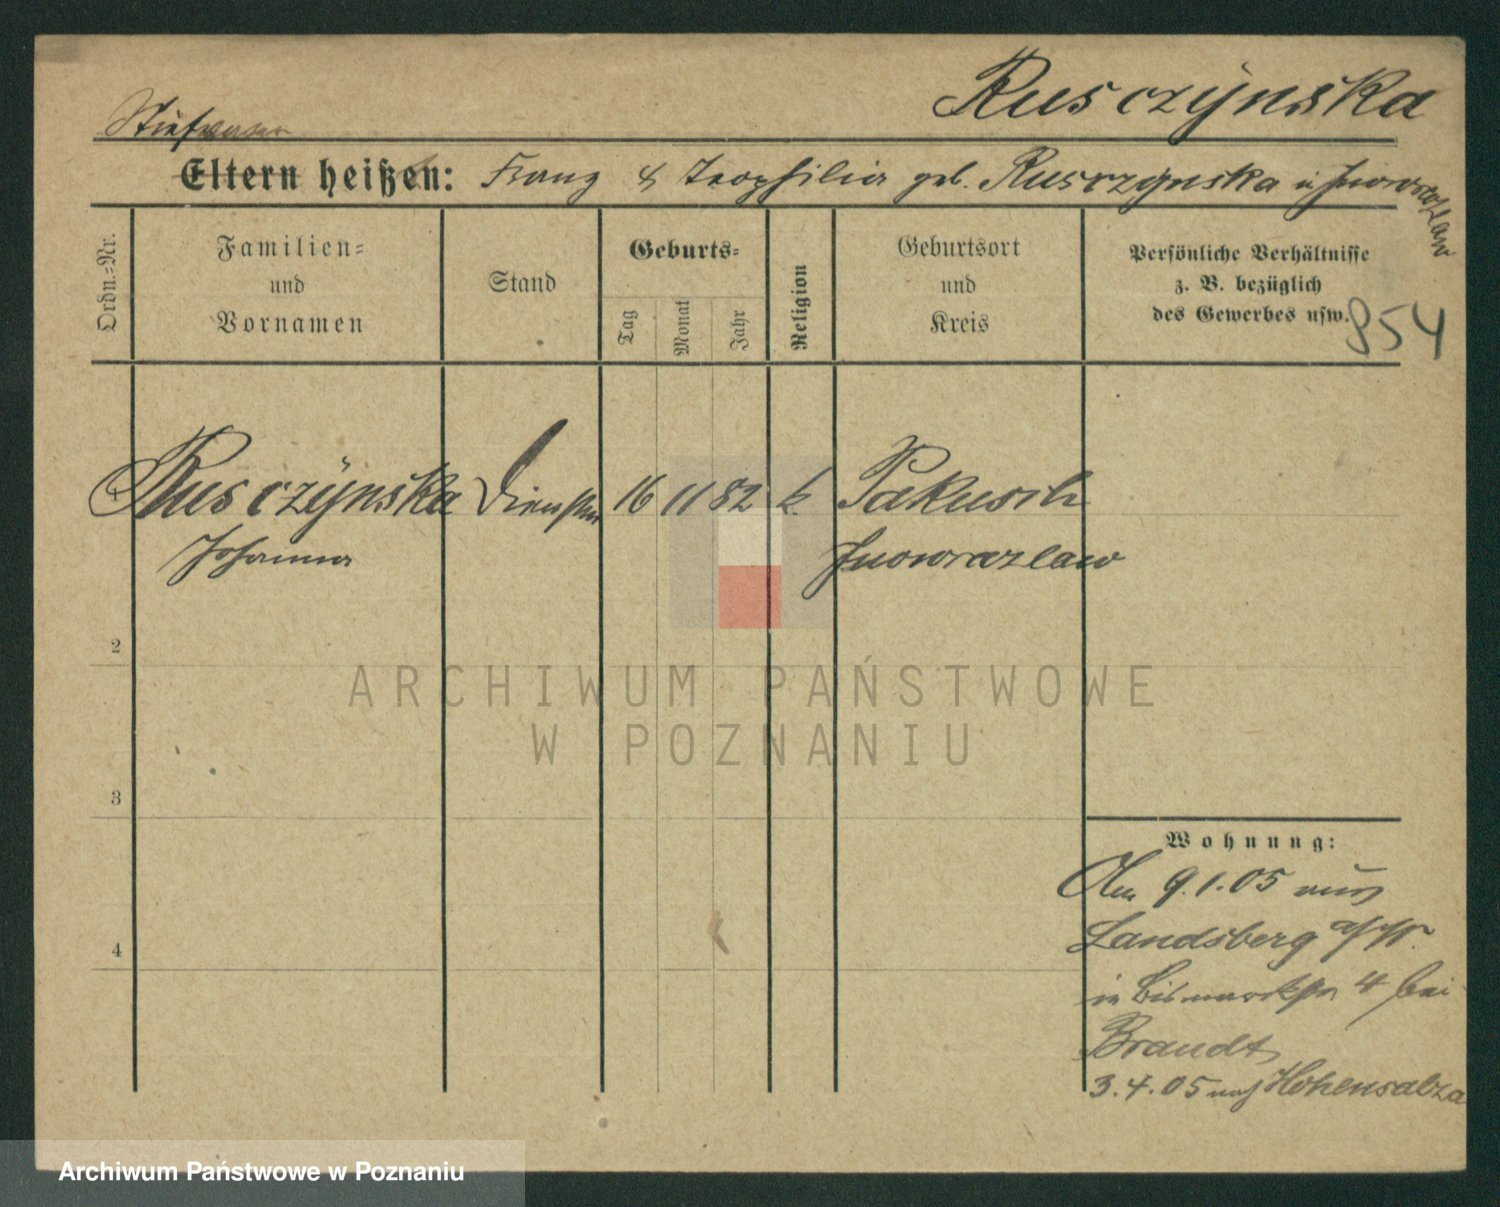 Rusczÿnska
Eltern heißen: Franz & Teophilia geb. Rusczynska in Inowrazlaw
Ordn.=Nr.
Familien=
und
Vornamen
Stand
Geburts=
Tag
Monat
Jahr
Religion
Geburtsort
und
Kreis
Persönliche Verhältnisse
z. B. bezüglich
des Gewerbes usw.
854
Rusczÿnska
Johanna
16 11 82 k.
Pakosch
Inowrazlaw
2
3
4
Wohnung:
Am 9.1.05 aus
Landsberg a/W.
in Bismarckstr 4 bei
Brandt
3.4.05 nach Hohensalza
ARCHIWUM PAŃSTWOWE
W POZNANIU
Archiwum Państwowe w Poznaniu